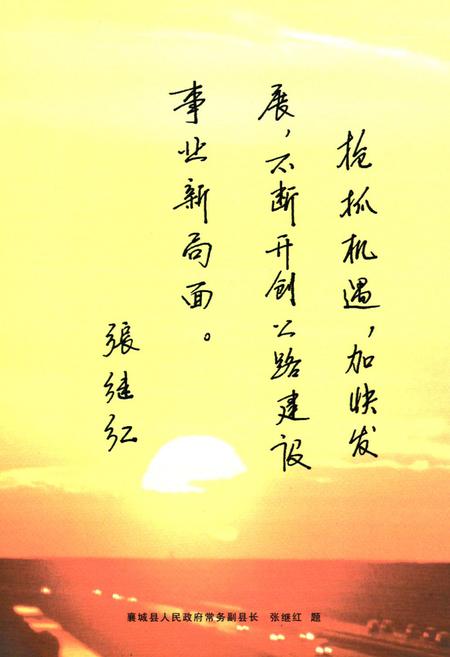 抢抓机遇，加快发
展，不断开创公路建设
事业新局面。
張继红
襄城县人民政府常务副县长 张继红 题